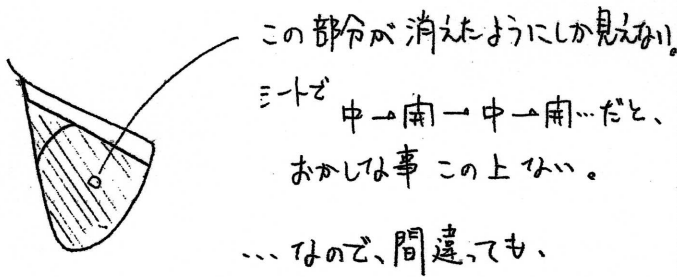 この部分が消えたようにしか見えない。
シートで
中→開→中→開…だと、
おかしな事この上ない。
…なので、間違っても、